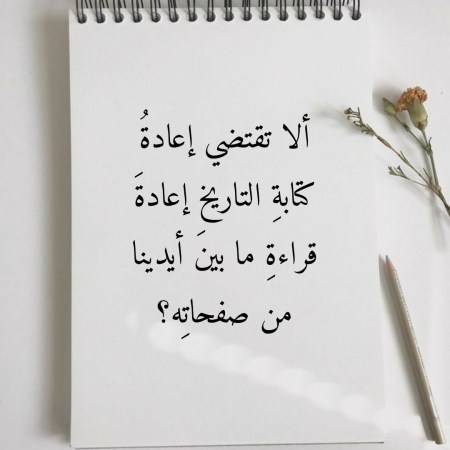 ألا تقتضي إعادةُ
كتابةِ التاريخ إعادةَ
قراءةِ ما بينَ أيدينا
من صفحاتِه؟